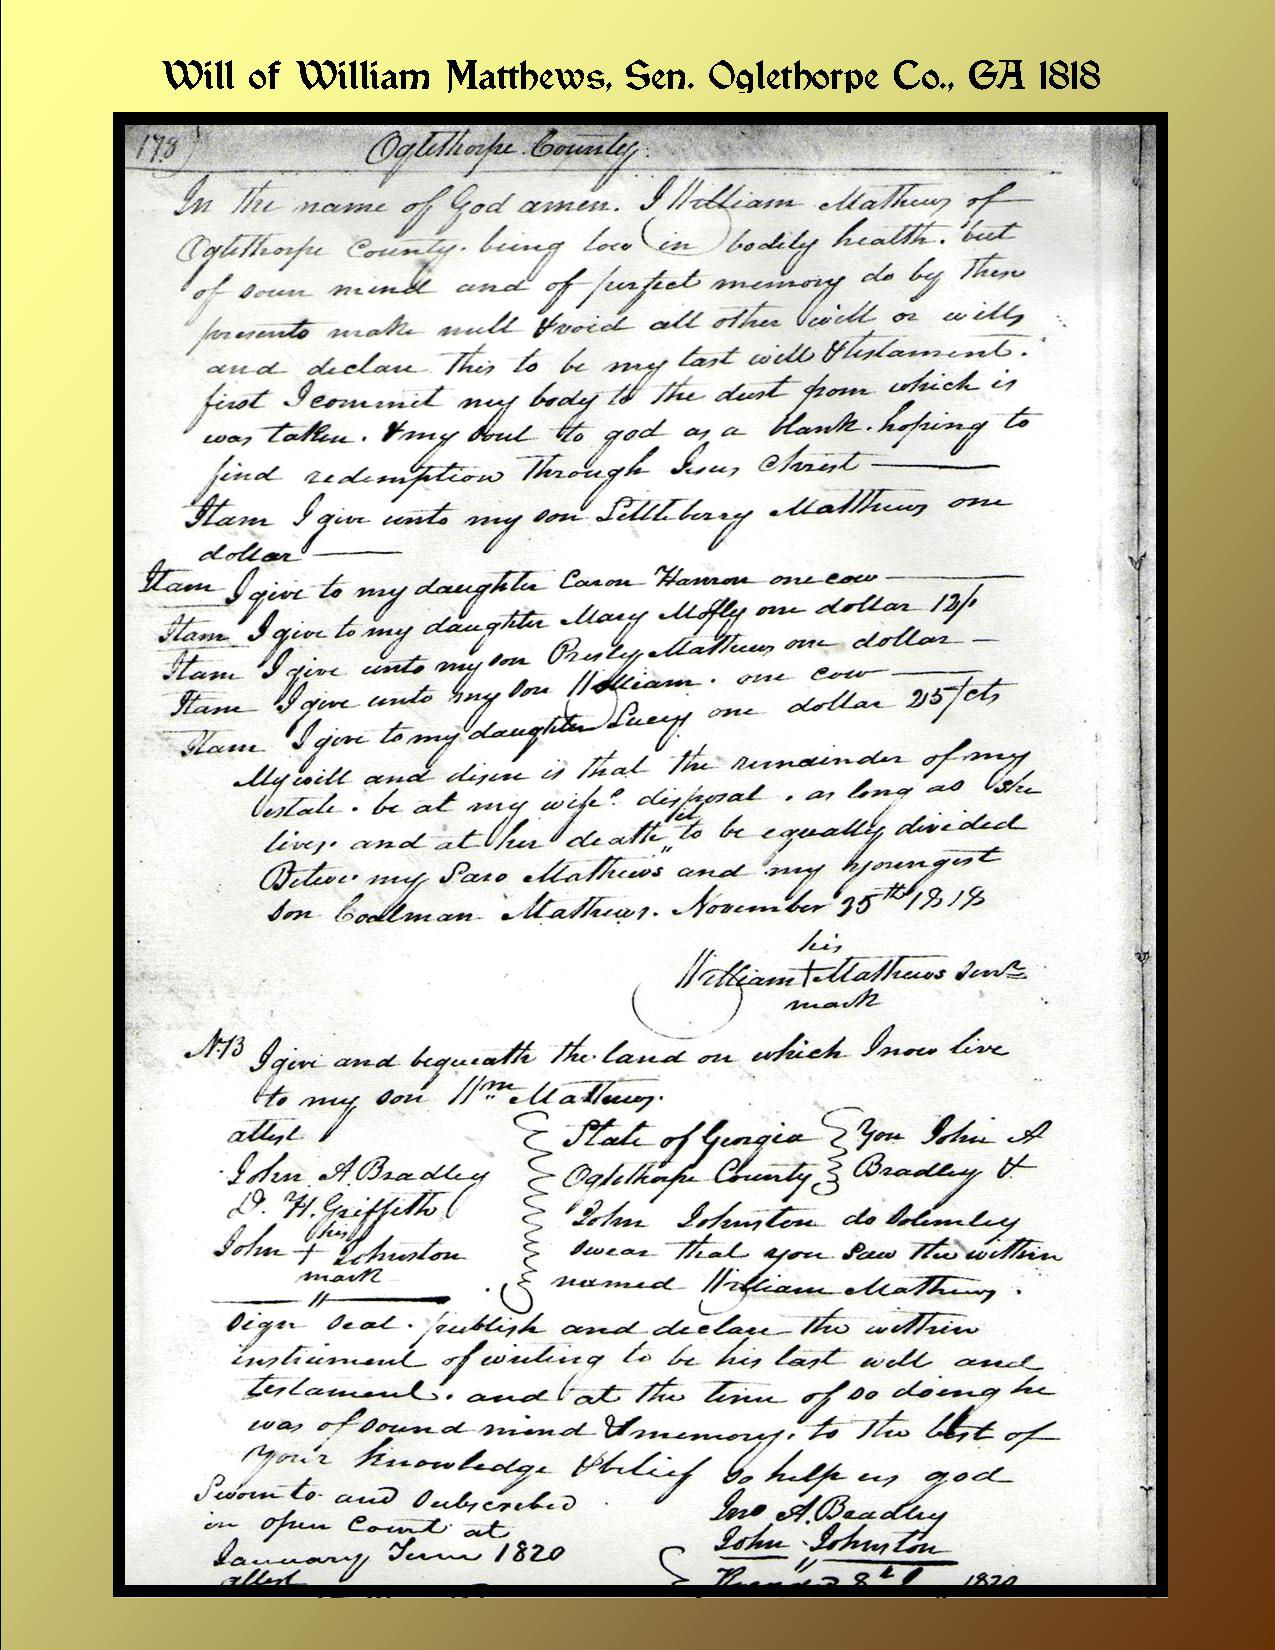 Will of William Matthews, Sen. Oglethorpe Co., GA 1818
178
Oglethorpe County.
In the name of God amen. I William Mathews of
Oglethorpe County. being low in bodily health. but
of soun mind and of perfect memory do by these
presents make null & void all other will or wills
and declare this to be my last will & testament.
first I commit my body to the dust from which is
was taken. & my soul to god as a blank. hoping to
find redemption through Jesus Christ
Itam I give unto my son Littleberry Matthews one
dollar
Itam I give to my daughter Caron one cow
Itam I give to my daughter Mary one dollar
Itam I give unto my son Presley Mathews one dollar
Itam I give unto my son William. one cow
Itam I give to my daughter Lucy one dollar 25/cts
My will and disire is that the remainder of my
estate. be at my wife's disposal. as long as she
lives. and at her death it to be equally divided
my Mathews and my youngest
son Coalman Mathews. November 25th 1818
his
William + Mathews Senr
mark
NB I give and bequeath the land on which I now live
to my son Wm Mathews.
attest
John A. Bradley
D. H. Griffith
his
John + Johnston
mark
State of Georgia
Oglethorpe County
You John A
Bradley &
John Johnston do Solemley
swear that you saw the within
named William Mathews.
sign seal. publish and declare the within
instrument of writing to be his last will and
testament. and at the time of so doing he
was of sound mind & memory. to the best of
your knowledge & belief so help us god
Sworn to and Subscribed
in open Court at
January Term 1820
attest
Jno A. Bradley
John Johnston
1820